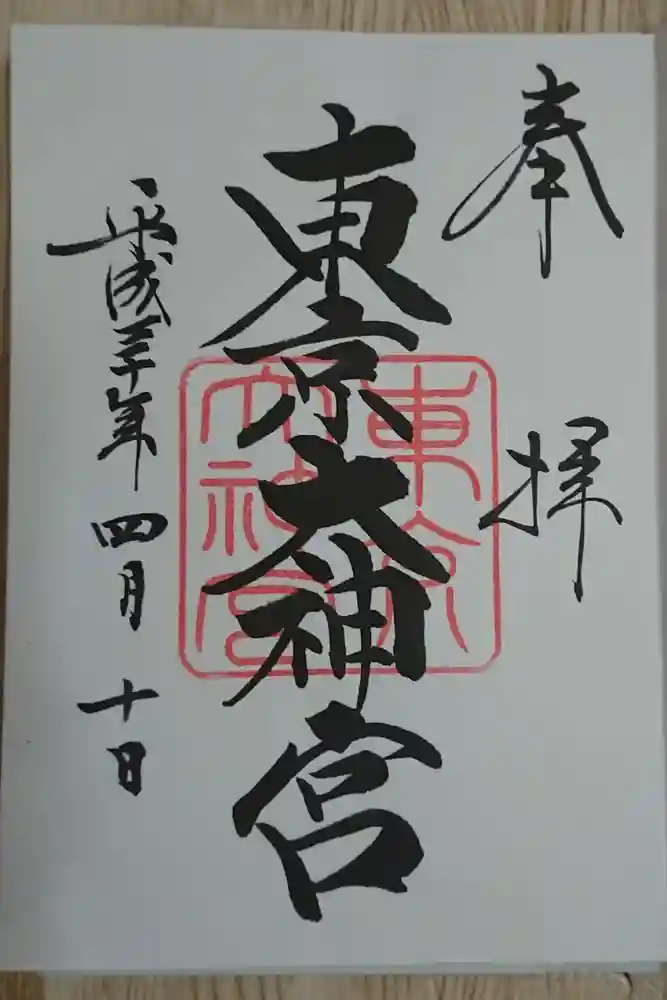 奉拝
東京大神宮
東京
大神宮
平成三十年四月十日